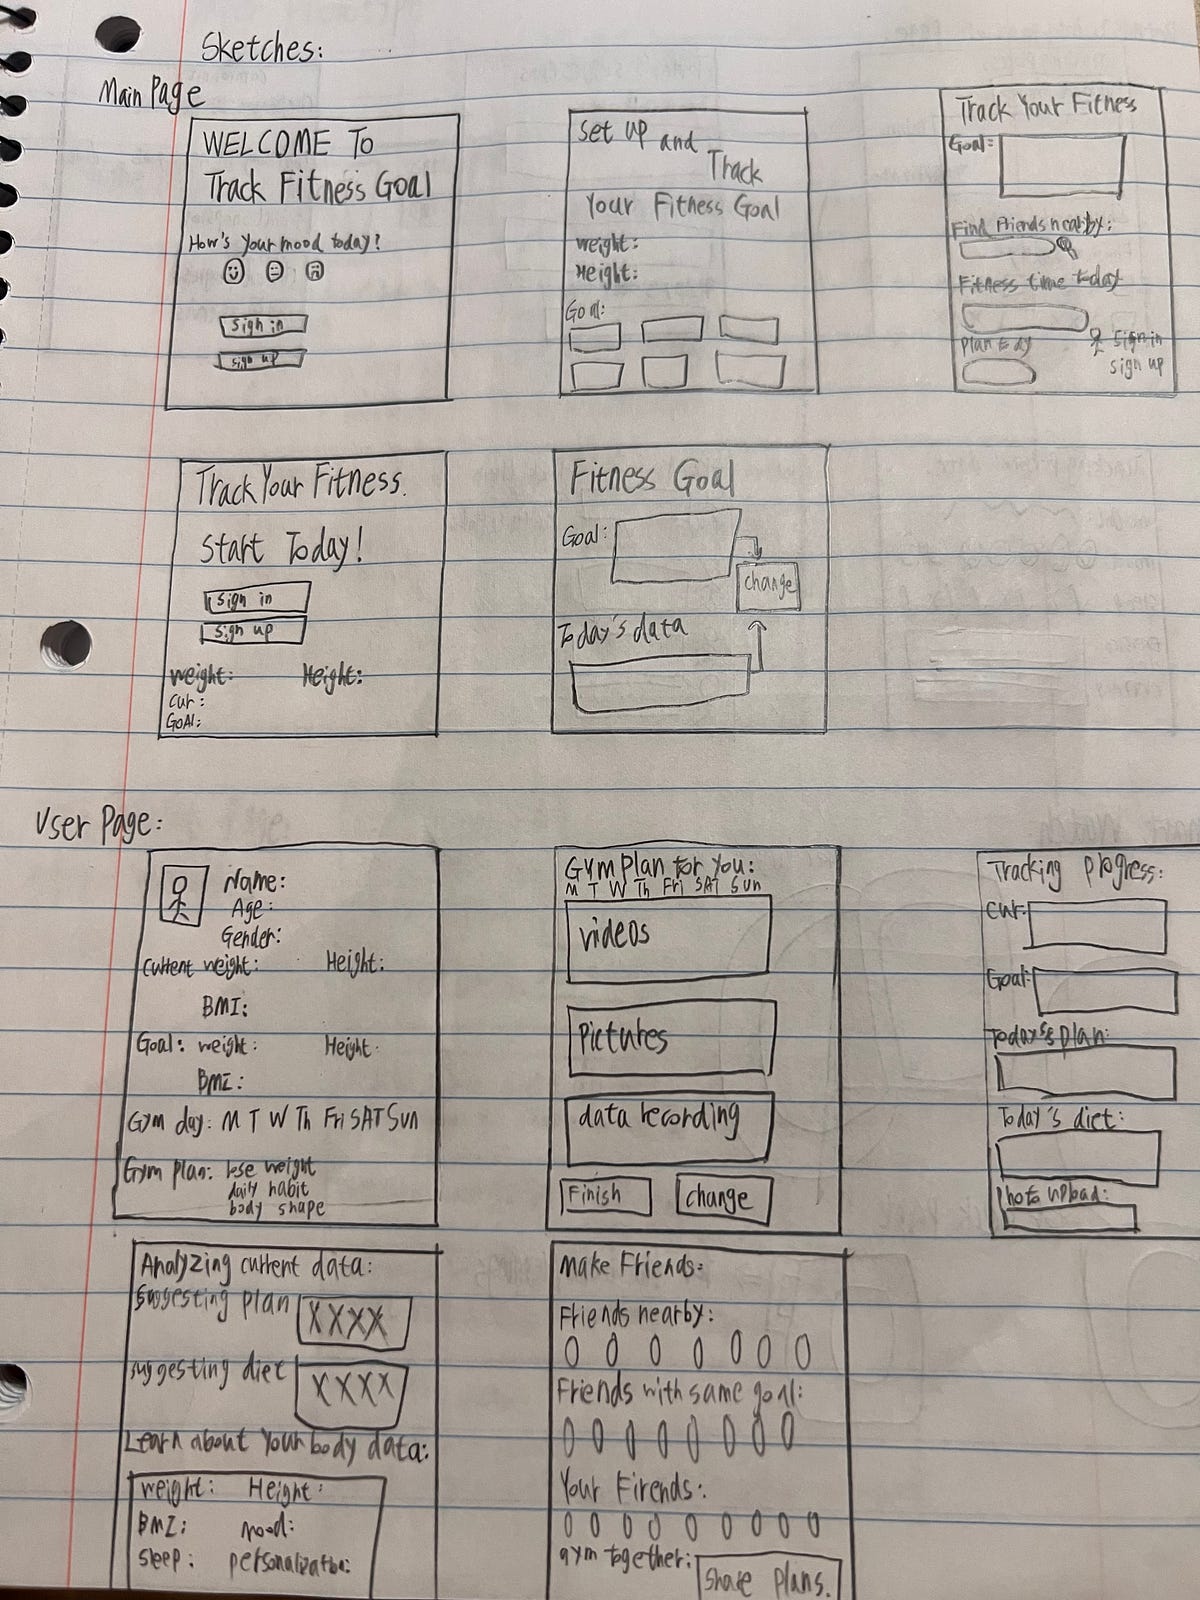 Sketches:
Main Page
WELCOME To
Track Fitness Goal
How's your mood today?
sign in
sign up
Set up and
Track
Your Fitness Goal
weight:
Height:
Goal:
Track Your Fitness
Goal:
Find Friends nearby:
Fitness time today
Plan
sign in
sign up
Track Your Fitness.
Start Today!
sign in
sign up
weight: Height:
cur:
GOAl:
Fitness Goal
Goal:
change
Today's data
User Page:
Name:
Age:
Gender:
current weight: Height:
BMI:
Goal: weight: Height:
BMI:
Gym day: M T W Th Fri SAT Sun
Gym plan: lose weight
daily habit
body shape
Gym Plan for you:
M T W Th Fri SAT Sun
videos
Pictures
data recording
Finish
change
Tracking Progress:
cur:
Goal:
Today's plan:
Today's diet:
Photo upload:
Analyzing current data:
suggesting plan
XXXX
suggesting diet
XXXX
Learn about Your body data:
weight: Height:
BMI: mood:
sleep: personalization:
Make Friends:
Friends nearby:
Friends with same goal:
Your Firends:
gym together:
share plans.